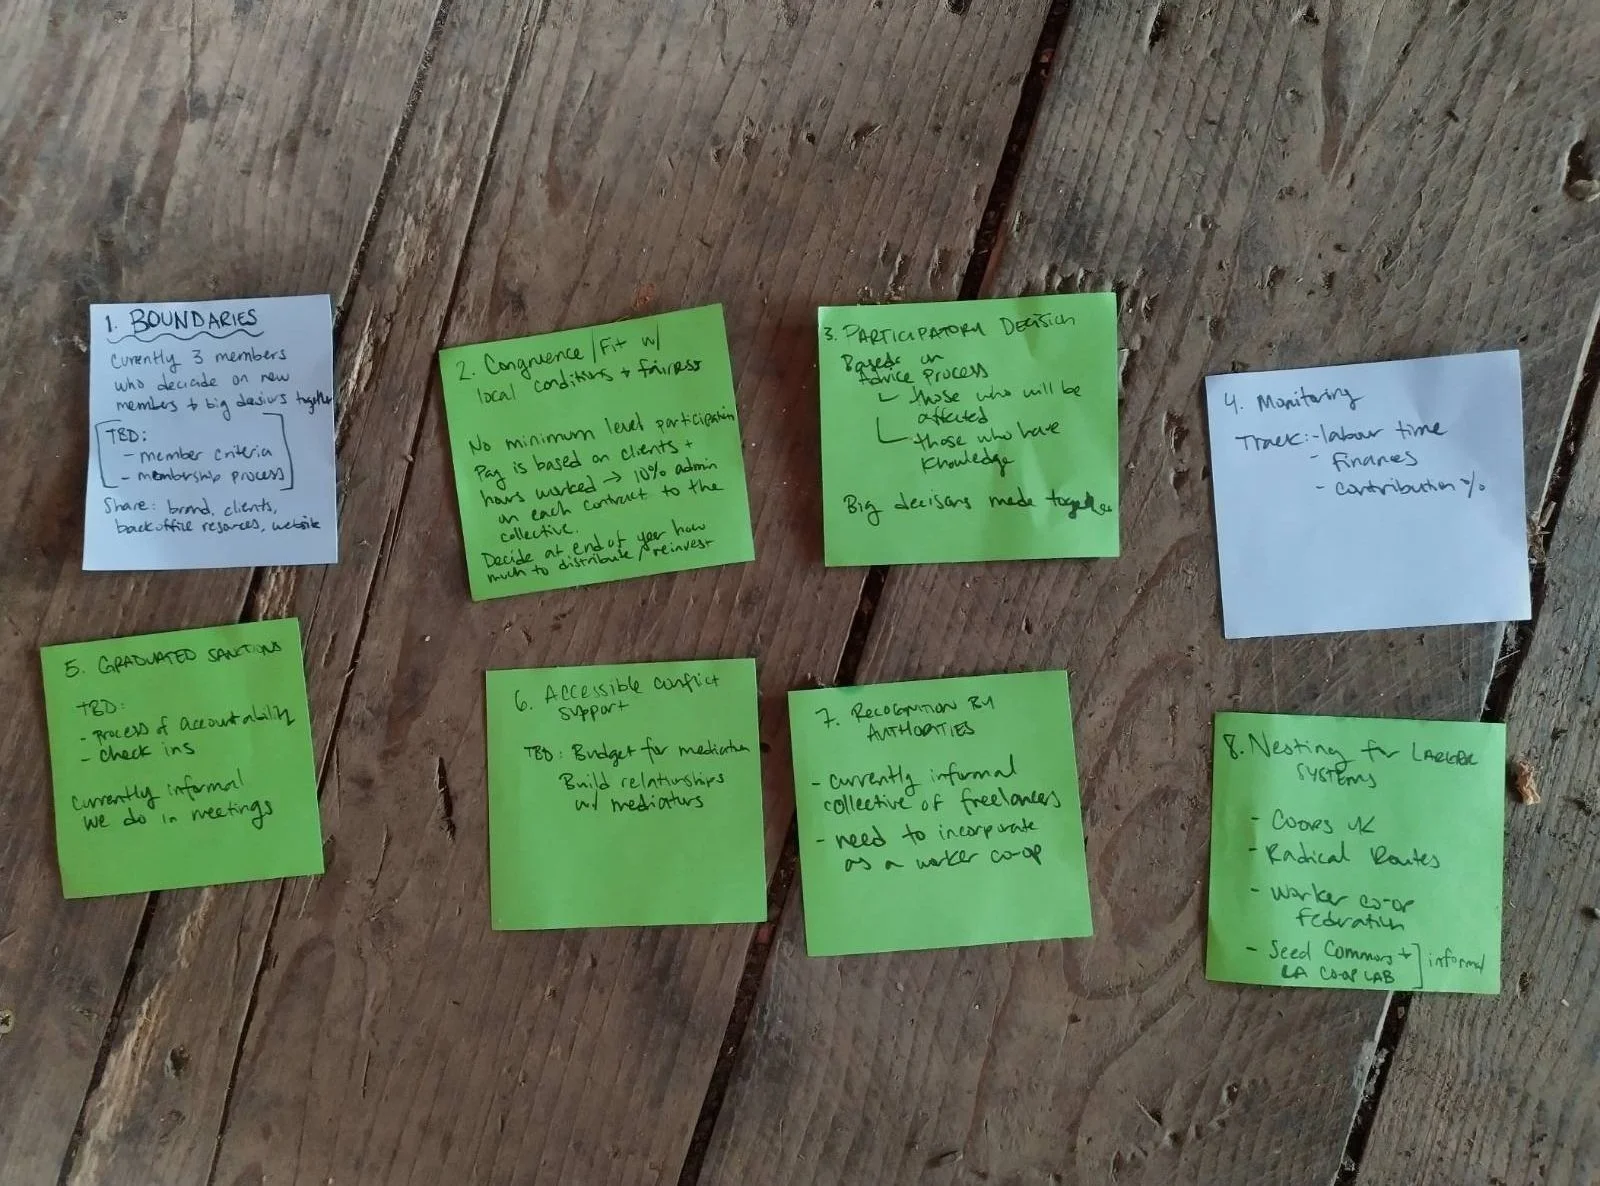 1. BOUNDARIES
Currently 3 members
who decide on new
members + big desiors together
TBD:
- member criteria
- membership process
Share: brand, clients,
back office resources, website
2. Congruence / Fit w/
local conditions + fairness
No minimum level participation
Pay is based on clients +
hours worked → 10% admin
on each contract to the
collective.
Decide at end of year how
much to distribute / reinvest
3. PARTICIPATORY DECISION
Based on
Advice Process
those who will be
affected
those who have
knowledge
Big decisons made together
4. Monitoring
Track: - labour time
- finances
- contribution %
5. GRADUATED SANCTIONS
TBD:
- process of accountability
- check ins
Currently informal
we do in meetings
6. Accessible conflict
support
TBD: Budget for mediation
Build relationships
w/ mediators
7. RECOGNITION BY
AUTHORITIES
- currently informal
collective of freelancers
- need to incorporate
as a worker co-op
8. Nesting for LARGER
SYSTEMS
- Coops UK
- Radical Routes
- Worker co-op
Federation
- Seed Commons + informal
LA CO-OP LAB